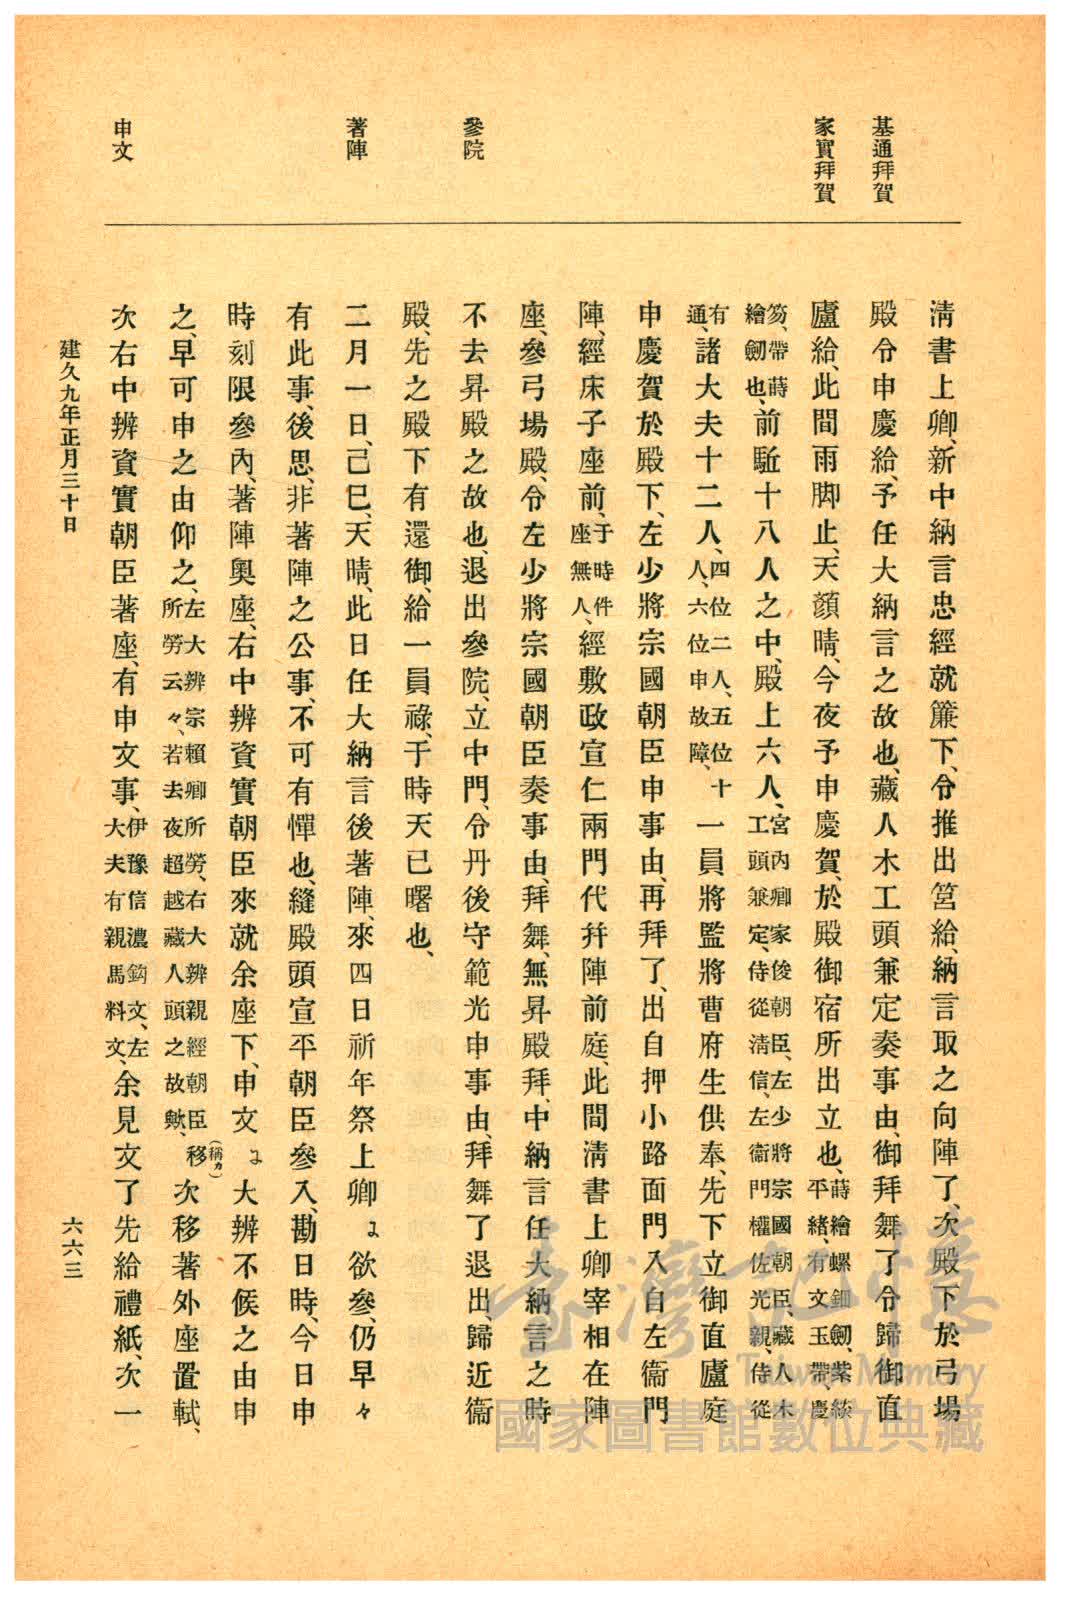 基通拜賀
家實拜賀
參院
著陣
申文
淸書上卿、新中納言忠經就簾下、令推出筥給、納言取之向陣了、次殿下於弓場
殿令申慶給、予任大納言之故也、藏人木工頭兼定奏事由、御拜舞了令歸御直
廬給、此間雨脚止、天顏晴、今夜予申慶賀、於殿御宿所出立也、蒔繪螺鈿劔、紫緂平緖、有文玉帶、慶
笏、帶蒔繪劔也、前駈十八人之中、殿上六人、宮內卿家俊朝臣、左少將宗國朝臣、藏人木工頭兼定、侍從淸信、左衞門權佐光親、侍從
有通、諸大夫十二人、四位二人、五位十人、六位申故障、一員將監將曹府生供奉、先下立御直廬庭
申慶賀於殿下、左少將宗國朝臣申事由、再拜了、出自押小路面門入自左衞門
陣、經床子座前、于時件座無人、經敷政宣仁兩門代幷陣前庭、此間淸書上卿宰相在陣
座、參弓場殿、令左少將宗國朝臣奏事由、拜舞、無昇殿拜、中納言任大納言之時
不去昇殿之故也、退出參院、立中門、令丹後守範光申事由、拜舞了退出、歸近衞
殿、先之殿下有還御、給一員祿、于時天已曙也、
二月一日、己巳、天晴、此日任大納言後著陣、來四日祈年祭上卿ニ欲參、仍早々
有此事、後思、非著陣之公事、不可有憚也、縫殿頭宣平朝臣參入、勘日時、今日申
時刻限參內、著陣奧座、右中辨資實朝臣來就余座下、申文ニ大辨不候之由申
之、早可申之由仰之、左大辨宗賴卿所勞、右大辨親經朝臣所勞云々、若去夜超越藏人頭之故歟、移(稱カ)次移著外座置軾、
次右中辨資實朝臣著座、有申文事、伊豫信濃鈎文、左大夫有親馬料文、余見文了先給禮紙、次一
建久九年正月三十日
六六三
臺灣記憶
Taiwan Memory
國家圖書館數位典藏